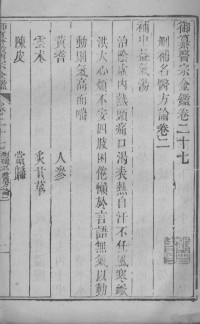 御纂醫宗金鑑卷二十七
刪補名醫方論卷二
補中益氣湯
治陰虛內熱頭痛口渴表熱自汗不任風寒脈
洪大心煩不安四肢困倦懶於言語無氣以動
動則氣高而喘
黃耆 人參
雲朮 炙甘草
陳皮 當歸